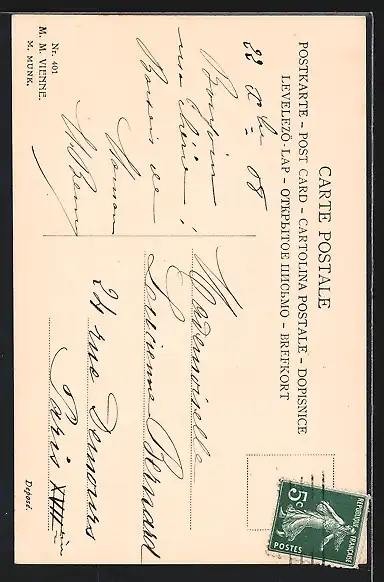 CARTE POSTALE
POSTKARTE - POST CARD - CARTOLINA POSTALE - DOPISNICE
LEVELEZŐ-LAP - ОТКРЫТОЕ ПИСЬМО - BREFKORT
22 Xbre 08
Bonsoir
ma chère!
Baisers de
Maman
Nr. 401
M. M. VIENNE.
M. MUNK.
Mademoiselle
Lucienne Bernard
24 rue Demours
Paris XVII
Déposé.
RÉPUBLIQUE FRANÇAISE
5c
POSTES